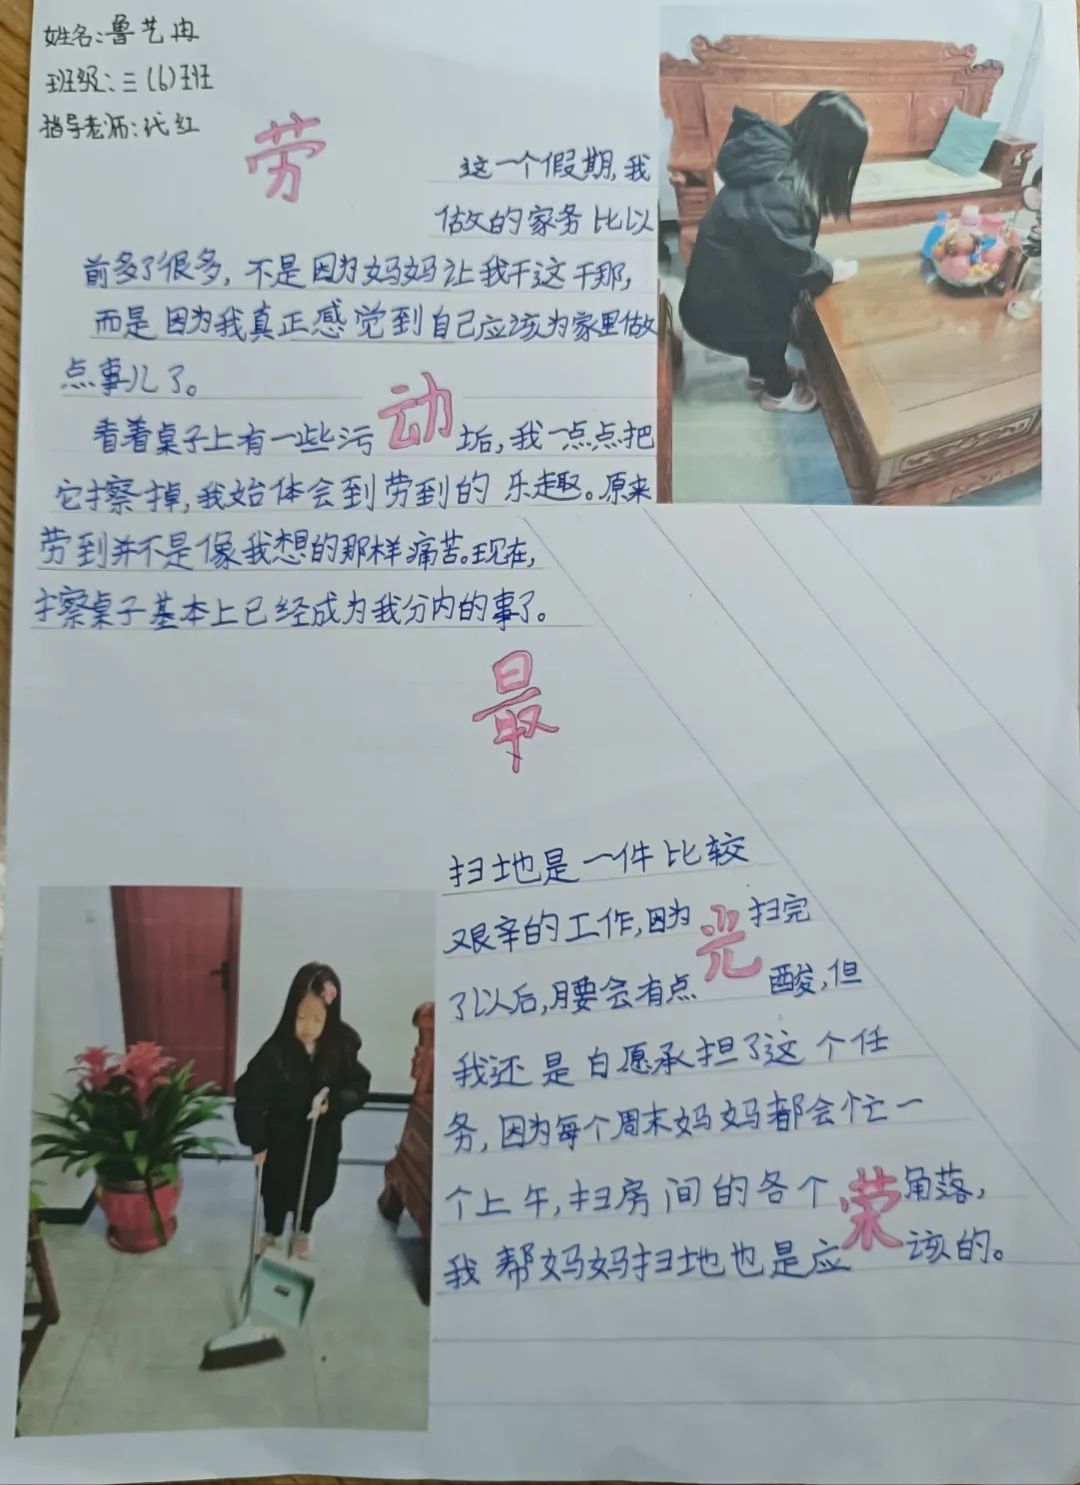 姓名:鲁艺冉
班级:三(6)班
指导老师:代红
劳
这一个假期,我
做的家务比以
前多了很多,不是因为妈妈让我干这干那,
而是因为我真正感觉到自己应该为家里做
点事儿了。
动
看着桌子上有一些污垢,我一点点把
它擦掉,我始体会到劳到的乐趣。原来
劳到并不是像我想的那样痛苦。现在,
擦桌子基本上已经成为我分内的事了。
最
扫地是一件比较
艰辛的工作,因为扫完
光
了以后,腰会有点酸,但
我还是自愿承担了这个任
务,因为每个周末妈妈都会忙一
个上午,扫房间的各个角落,
荣
我帮妈妈扫地也是应该的。